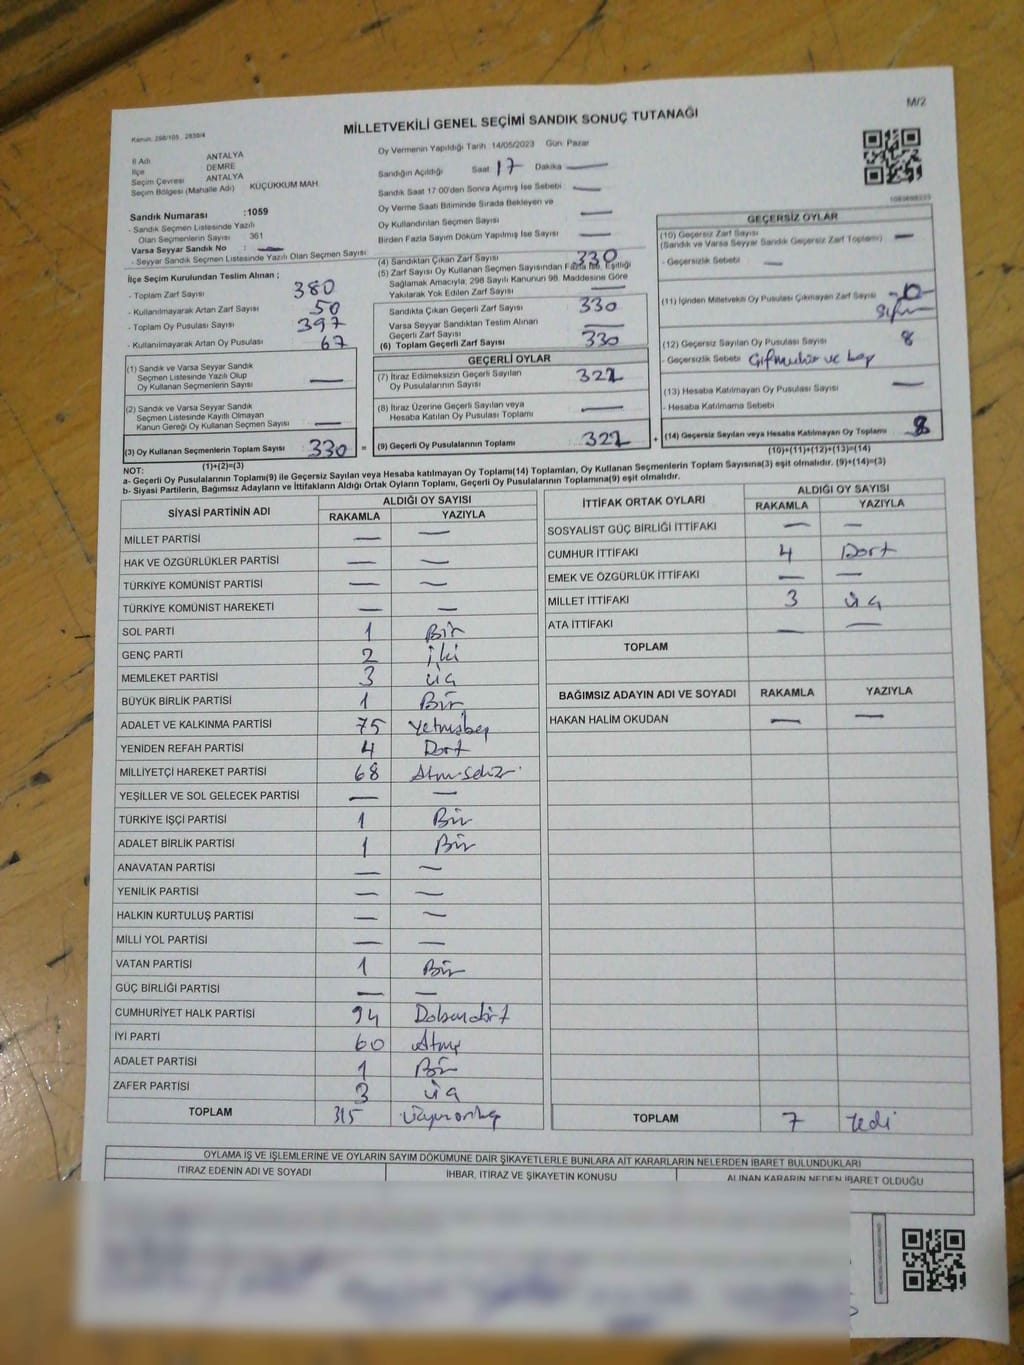 M/2
MİLLETVEKİLİ GENEL SEÇİMİ SANDIK SONUÇ TUTANAĞI
Kanun: 298/105 , 2839/4
İl Adı ANTALYA
İlçe DEMRE
Seçim Çevresi ANTALYA
Seçim Bölgesi (Mahalle Adı) KÜÇÜKKUM MAH.
Oy Vermenin Yapıldığı Tarih 14/05/2023 Gün Pazar
Sandığın Açıldığı Saat 17 Dakika —
Sandık Saat 17:00'den Sonra Açımış İse Sebebi —
Oy Verme Saati Bitiminde Sırada Bekleyen ve
Oy Kullandırılan Seçmen Sayısı —
Birden Fazla Sayım Döküm Yapılmış İse Sayısı —
Sandık Numarası :1059
- Sandık Seçmen Listesinde Yazılı
Olan Seçmenlerin Sayısı : 361
Varsa Seyyar Sandık No : —
- Seyyar Sandık Seçmen Listesinde Yazılı Olan Seçmen Sayısı
İlçe Seçim Kurulundan Teslim Alınan ;
- Toplam Zarf Sayısı 380
- Kullanılmayarak Artan Zarf Sayısı 50
- Toplam Oy Pusulası Sayısı 397
- Kullanılmayarak Artan Oy Pusulası 67
(1) Sandık ve Varsa Seyyar Sandık
Seçmen Listesinde Yazılı Olup
Oy Kullanan Seçmenlerin Sayısı —
(2) Sandık ve Varsa Seyyar Sandık
Seçmen Listesinde Kayıtlı Olmayan
Kanun Gereği Oy Kullanan Seçmen Sayısı —
(3) Oy Kullanan Seçmenlerin Toplam Sayısı 330 =
(1)+(2)=(3)
(4) Sandıktan Çıkan Zarf Sayısı 330
(5) Zarf Sayısı Oy Kullanan Seçmen Sayısından Fazla İse, Eşitliği
Sağlamak Amacıyla, 298 Sayılı Kanunun 98. Maddesine Göre
Yakılarak Yok Edilen Zarf Sayısı —
Sandıkta Çıkan Geçerli Zarf Sayısı 330
Varsa Seyyar Sandıktan Teslim Alınan
Geçerli Zarf Sayısı —
(6) Toplam Geçerli Zarf Sayısı 330
GEÇERLİ OYLAR
(7) İtiraz Edilmeksizin Geçerli Sayılan
Oy Pusulalarının Sayısı 322
(8) İtiraz Üzerine Geçerli Sayılan veya
Hesaba Katılan Oy Pusulası Toplamı —
(9) Geçerli Oy Pusulalarının Toplamı 322 +
GEÇERSİZ OYLAR
(10) Geçersiz Zarf Sayısı —
(Sandık ve Varsa Seyyar Sandık Geçersiz Zarf Toplamı)
- Geçersizlik Sebebi —
(11) İçinden Milletvekili Oy Pusulası Çıkmayan Zarf Sayısı -0-
Sıfır
(12) Geçersiz Sayılan Oy Pusulası Sayısı 8
- Geçersizlik Sebebi ve
(13) Hesaba Katılmayan Oy Pusulası Sayısı —
- Hesaba Katılmama Sebebi
(14) Geçersiz Sayılan veya Hesaba Katılmayan Oy Toplamı 8
(10)+(11)+(12)+(13)=(14)
NOT:
a- Geçerli Oy Pusulalarının Toplamı(9) ile Geçersiz Sayılan veya Hesaba katılmayan Oy Toplamı(14) Toplamları, Oy Kullanan Seçmenlerin Toplam Sayısına(3) eşit olmalıdır. (9)+(14)=(3)
b- Siyasi Partilerin, Bağımsız Adayların ve İttifakların Aldığı Ortak Oyların Toplamı, Geçerli Oy Pusulalarının Toplamına(9) eşit olmalıdır.
SİYASİ PARTİNİN ADI ALDIĞI OY SAYISI
RAKAMLA YAZIYLA
MİLLET PARTİSİ — —
HAK VE ÖZGÜRLÜKLER PARTİSİ — —
TÜRKİYE KOMÜNİST PARTİSİ — —
TÜRKİYE KOMÜNİST HAREKETİ — —
SOL PARTİ 1 Bir
GENÇ PARTİ 2 İki
MEMLEKET PARTİSİ 3 Üç
BÜYÜK BİRLİK PARTİSİ 1 Bir
ADALET VE KALKINMA PARTİSİ 75 Yetmişbeş
YENİDEN REFAH PARTİSİ 4 Dört
MİLLİYETÇİ HAREKET PARTİSİ 68 Atmışsekiz
YEŞİLLER VE SOL GELECEK PARTİSİ — —
TÜRKİYE İŞÇİ PARTİSİ 1 Bir
ADALET BİRLİK PARTİSİ 1 Bir
ANAVATAN PARTİSİ — —
YENİLİK PARTİSİ — —
HALKIN KURTULUŞ PARTİSİ — —
MİLLİ YOL PARTİSİ — —
VATAN PARTİSİ 1 Bir
GÜÇ BİRLİĞİ PARTİSİ — —
CUMHURİYET HALK PARTİSİ 94 Doksandört
İYİ PARTİ 60 Atmış
ADALET PARTİSİ 1 Bir
ZAFER PARTİSİ 3 Üç
TOPLAM 315 Üçyüzonbeş
İTTİFAK ORTAK OYLARI ALDIĞI OY SAYISI
RAKAMLA YAZIYLA
SOSYALİST GÜÇ BİRLİĞİ İTTİFAKI — —
CUMHUR İTTİFAKI 4 Dört
EMEK VE ÖZGÜRLÜK İTTİFAKI — —
MİLLET İTTİFAKI 3 Üç
ATA İTTİFAKI — —
TOPLAM
BAĞIMSIZ ADAYIN ADI VE SOYADI RAKAMLA YAZIYLA
HAKAN HALİM OKUDAN — —
TOPLAM 7 Yedi
OYLAMA İŞ VE İŞLEMLERİNE VE OYLARIN SAYIM DÖKÜMÜNE DAİR ŞİKAYETLERLE BUNLARA AİT KARARLARIN NELERDEN İBARET BULUNDUKLARI
İTİRAZ EDENİN ADI VE SOYADI İHBAR, İTİRAZ VE ŞİKAYETİN KONUSU ALINAN KARARIN NEDEN İBARET OLDUĞU